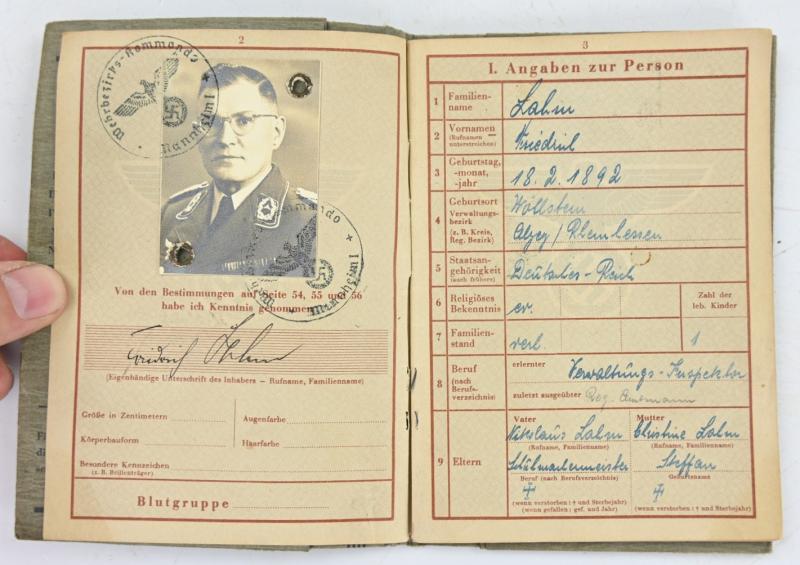 2
Wehrbezirks-Kommando
Mannheim I
Wehrbezirks-Kommando
Mannheim I
Von den Bestimmungen auf Seite 54, 55 und 56
habe ich Kenntnis genommen
Friedrich Lahm
(Eigenhändige Unterschrift des Inhabers – Rufname, Familienname)
Größe in Zentimetern
Augenfarbe
Körperbauform
Haarfarbe
Besondere Kennzeichen
(z. B. Brillenträger)
Blutgruppe
3
I. Angaben zur Person
1 Familien-
name
Lahm
2 Vornamen
(Rufnamen
unterstreichen)
Friedrich
3 Geburtstag,
-monat,
-jahr
18.2.1892
4 Geburtsort
Verwaltungs-
bezirk
(z. B. Kreis,
Reg. Bezirk)
Wöllstein
Alzey / Rheinhessen
5 Staatsan-
gehörigkeit
(auch frühere)
Deutsches-Reich
6 Religiöses
Bekenntnis
ev.
Zahl der
leb. Kinder
7 Familien-
stand
verh.
1
8 Beruf
(nach
Berufs-
verzeichnis)
erlernter
Verwaltungs-Inspektor
zuletzt ausgeübter
Reg. Amtmann
9 Eltern
Vater
Mutter
Nikolaus Lahm
Christine Lahm
(Rufname, Familienname)
(Rufname, Familienname)
Schuhmachermeister
Steffan
Beruf (nach Berufsverzeichnis)
Geburtsname
(wenn verstorben: † und Sterbejahr)
(wenn gefallen: gef. und Jahr)
(wenn verstorben: † und Sterbejahr)